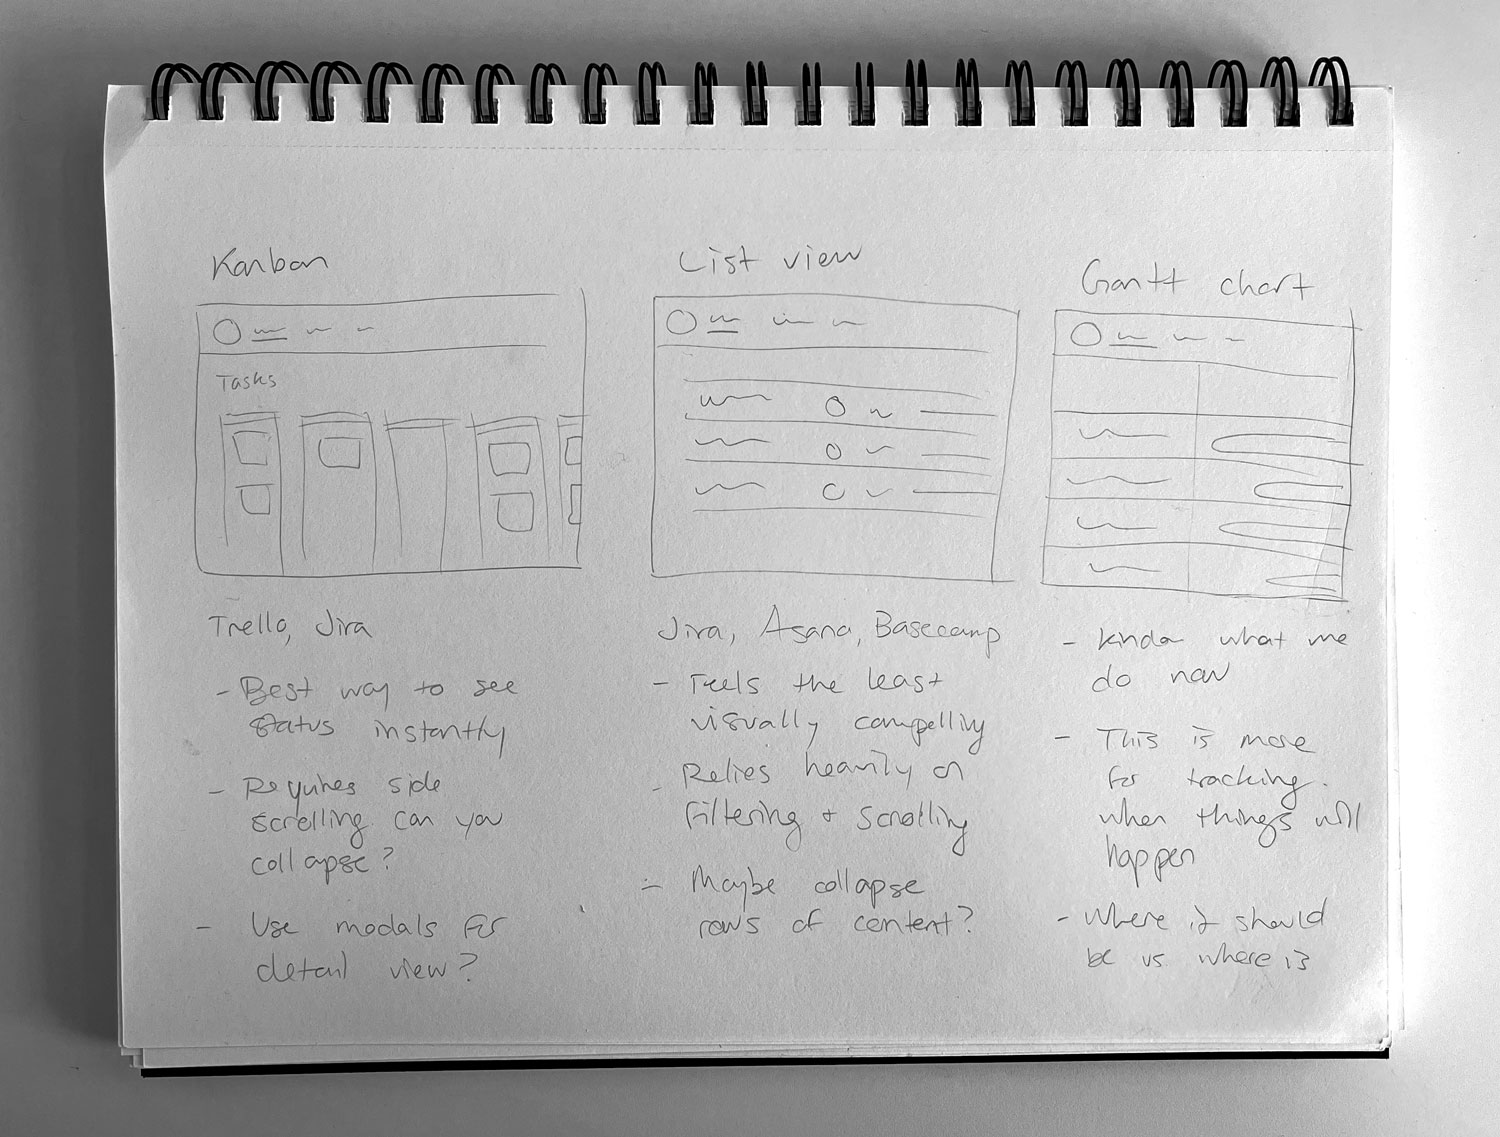 Kanban
Tasks
Trello, Jira
- Best way to see
status instantly
- Requires side
scrolling. Can you
collapse?
- Use modals for
detail view?
List view
Jira, Asana, Basecamp
- Feels the least
visually compelling
- Relies heavily on
filtering + scrolling
- Maybe collapse
rows of content?
Gantt chart
- Kinda what we
do now
- This is more
for tracking
when things will
happen
- Where it should
be vs where is